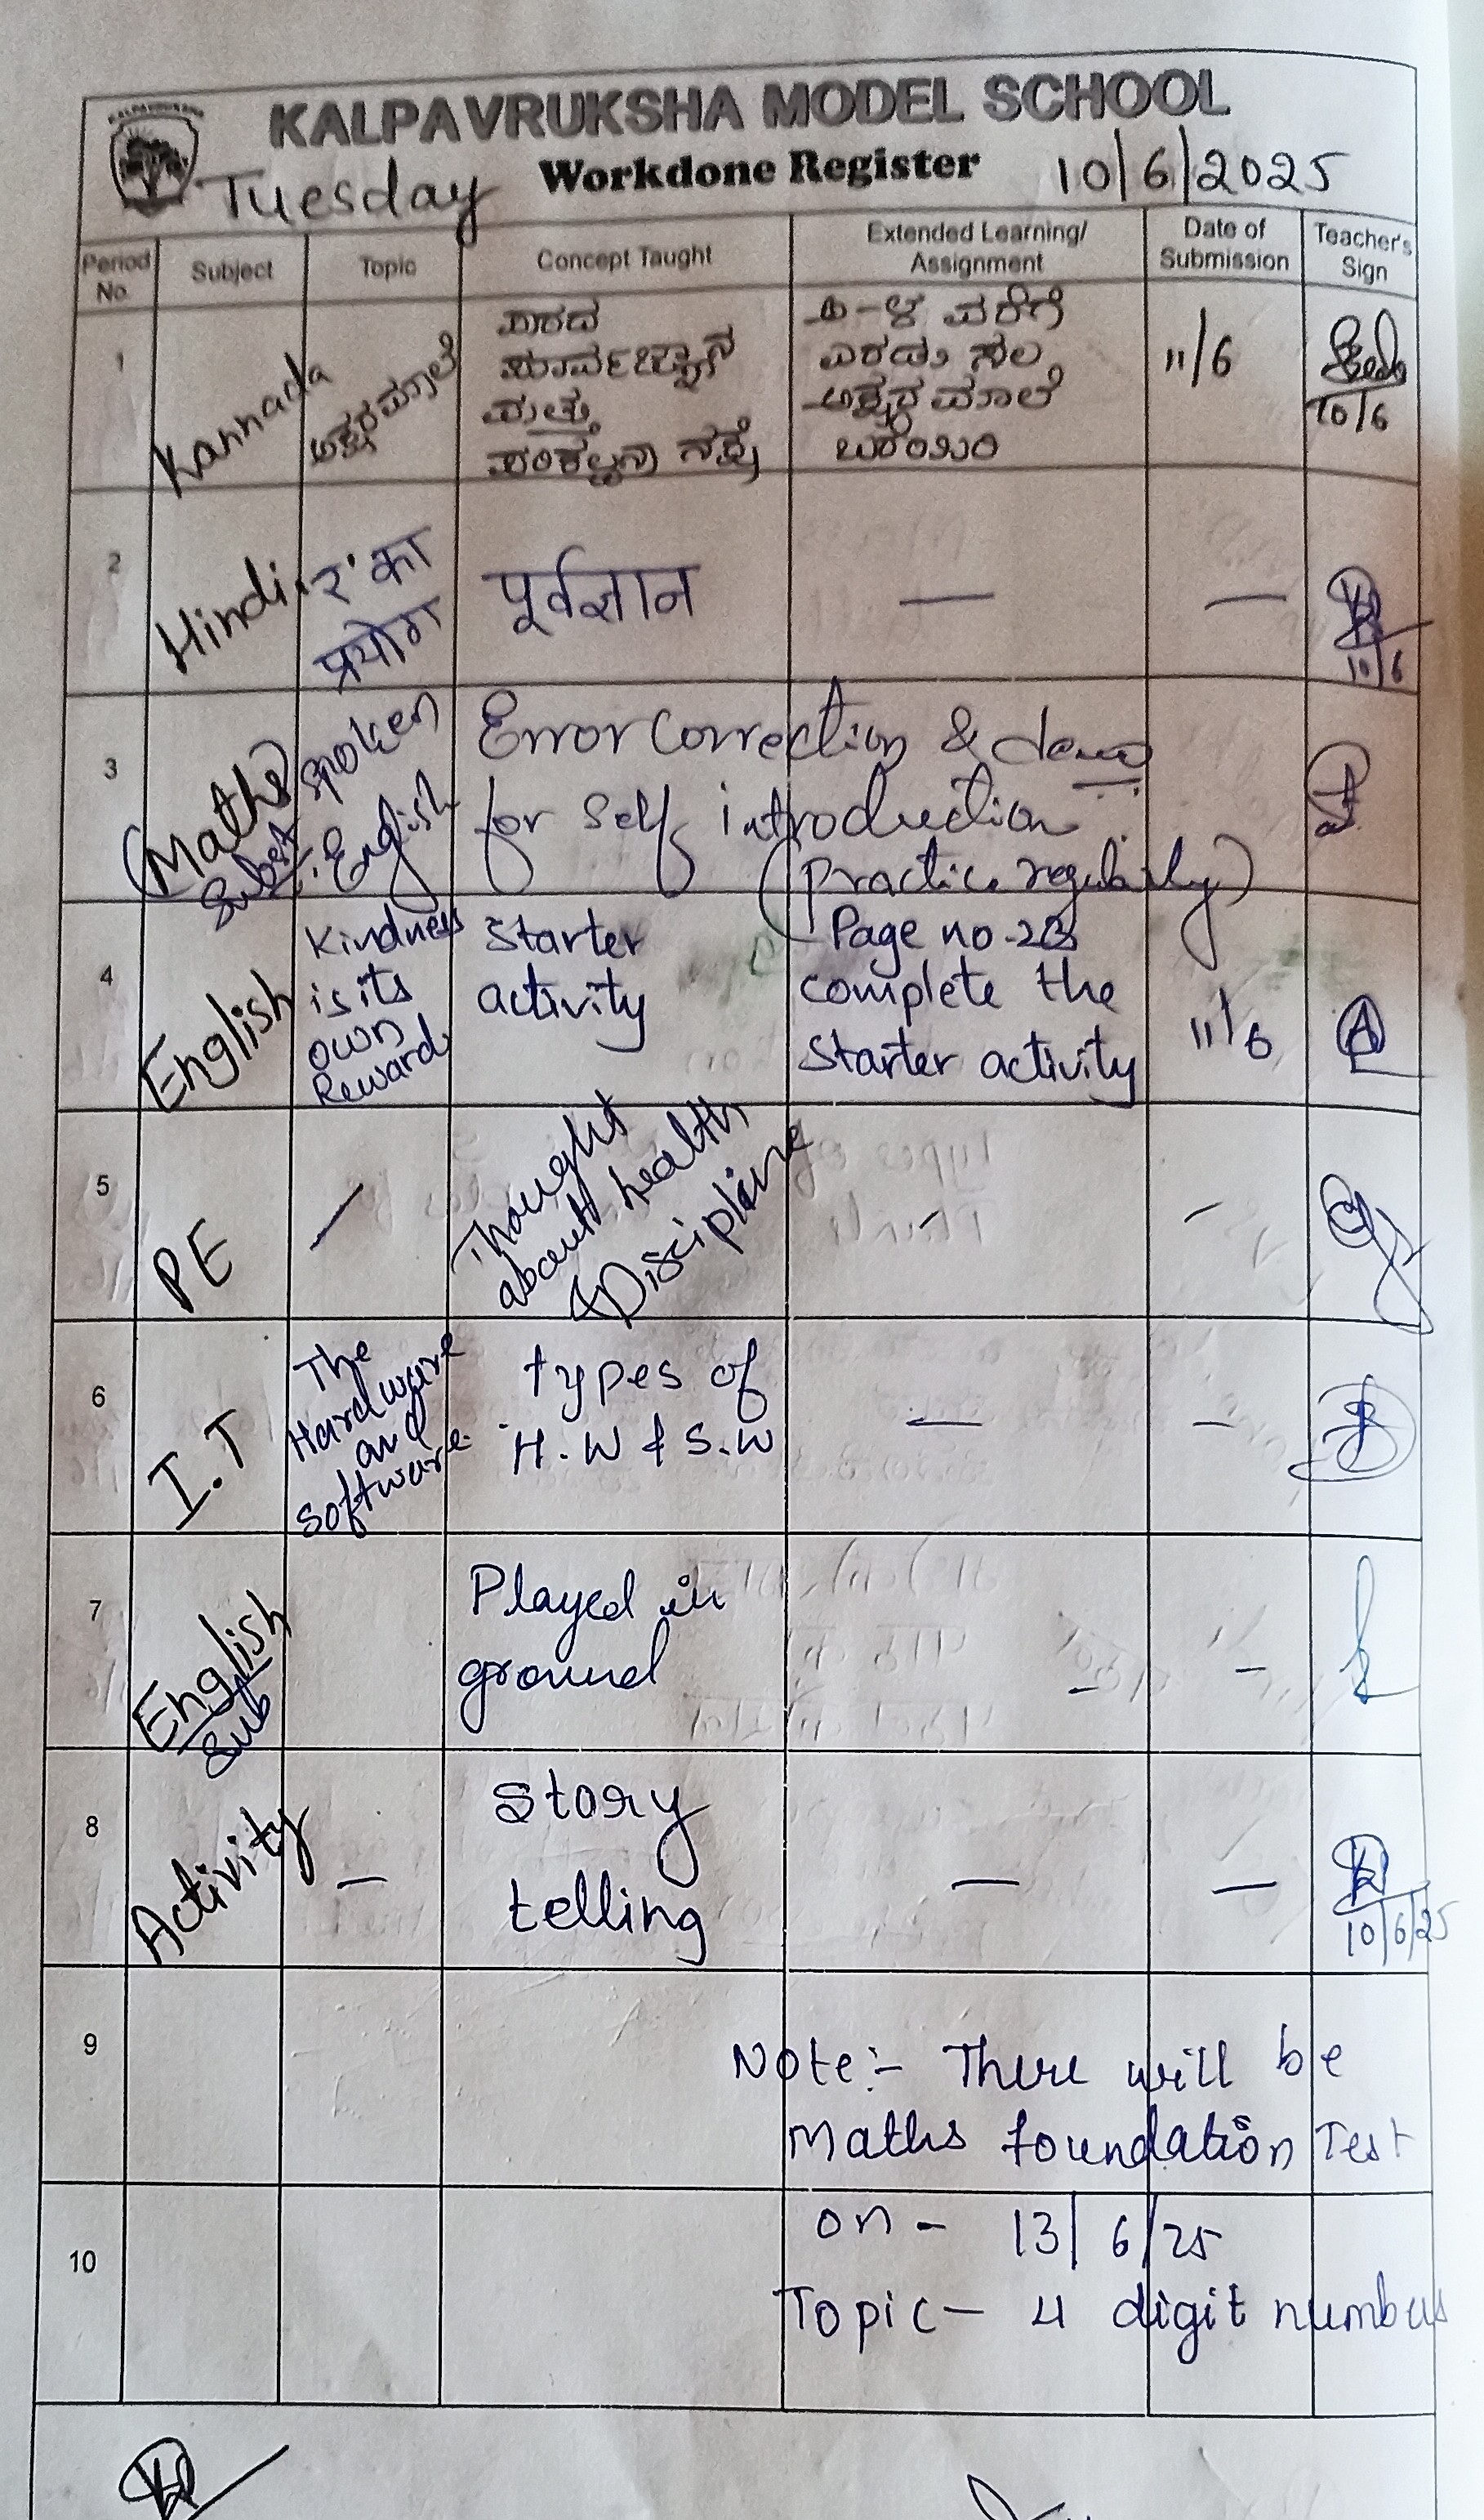 KALPAVRUKSHA
KALPAVRUKSHA MODEL SCHOOL
Tuesday Workdone Register 10/6/2025
Period No. Subject Topic Concept Taught Extended Learning/ Assignment Date of Submission Teacher's Sign
1
Kannada
ಅಕ್ಷರಮಾಲೆ
ಪಾಠದ
ಪೂರ್ವಜ್ಞಾನ
ಮತ್ತು
ಪರಿಕಲ್ಪನಾ ನಕ್ಷೆ
ಅ-ಳ ವರೆಗೆ
ಎರಡು ಸಲ
ಅಕ್ಷರಮಾಲೆ
ಬರೆಯಿರಿ
11/6
10/6
2
Hindi
'र' का
प्रयोग
पूर्वज्ञान
—
—
10/6
3
(Maths)
Subst
spoken
English
Error correction & demo
for self introduction
(practice regularly)
4
English
Kindness
is its
own
Reward
Starter
activity
Page no-23
complete the
Starter activity
11/6
5
PE
—
Thought
about health
& Discipline
-
-
6
I.T
The
Hardware
and
software
types of
H.W & S.W
—
—
7
English
Sub
Played in
ground
-
-
8
Activity
—
Story
telling
—
—
10/6/25
9
Note:- There will be
Maths foundation Test
10
on - 13/6/25
Topic - 4 digit numbers